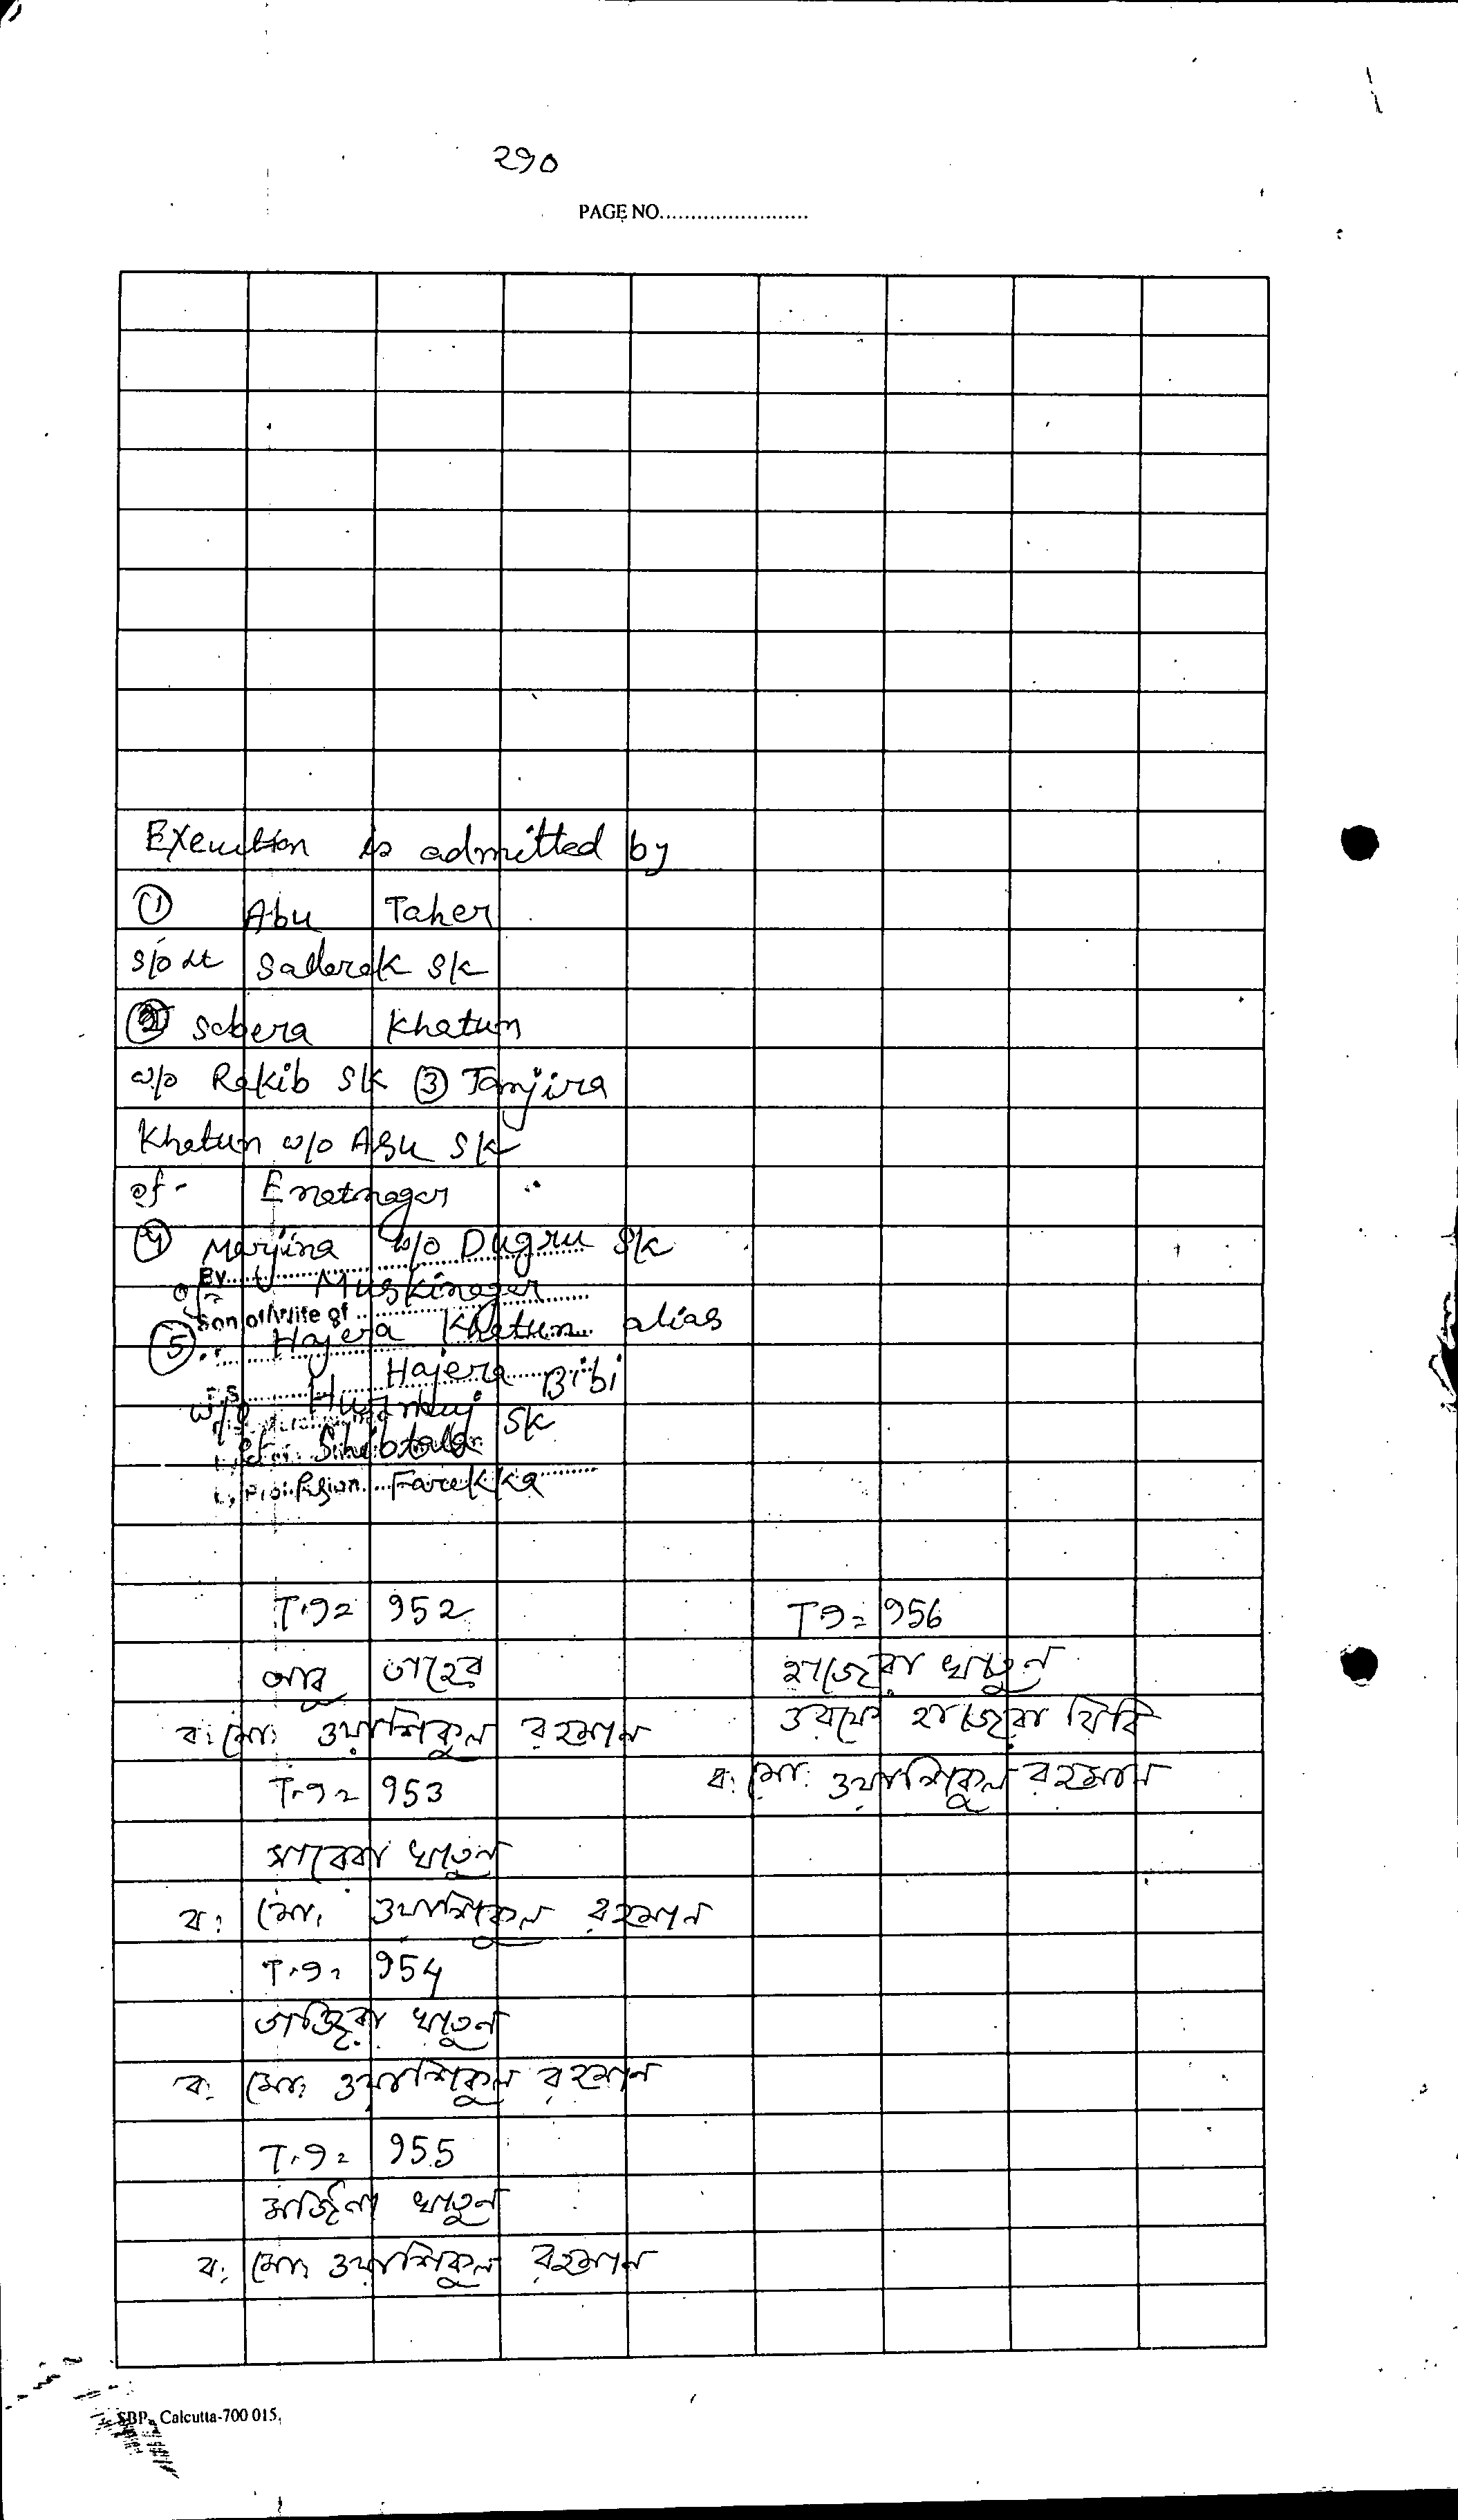 ২৭০
PAGE NO.
Execution is admitted by
① Abu Taher
S/o Lt Saderak SK
② Sabera Khatun
w/o Rakib SK ③ Tanjira
Khatun w/o Abu SK
of- Enatnagar
④ Marjina w/o Dugru SK
By
of- Muskinagar
Son of/Wife of
⑤ Hajera Khatun alias
Hajera Bibi
w/o SK
of Shibtala
Farakka
T.১= 952
আবু তাহের
ব: মো: ওয়াশিকুল রহমান
T.১= 953
সাবেরা খাতুন
ব: মো: ওয়াশিকুল রহমান
T.১= 954
তাঞ্জিরা খাতুন
ব: মো: ওয়াশিকুল রহমান
T.১= 955
মার্জিনা খাতুন
ব: মো: ওয়াশিকুল রহমান
T.১= 956
হাজেরা খাতুন
ওরফে হাজেরা বিবি
ব: মো: ওয়াশিকুল রহমান
SBP, Calcutta-700 015.